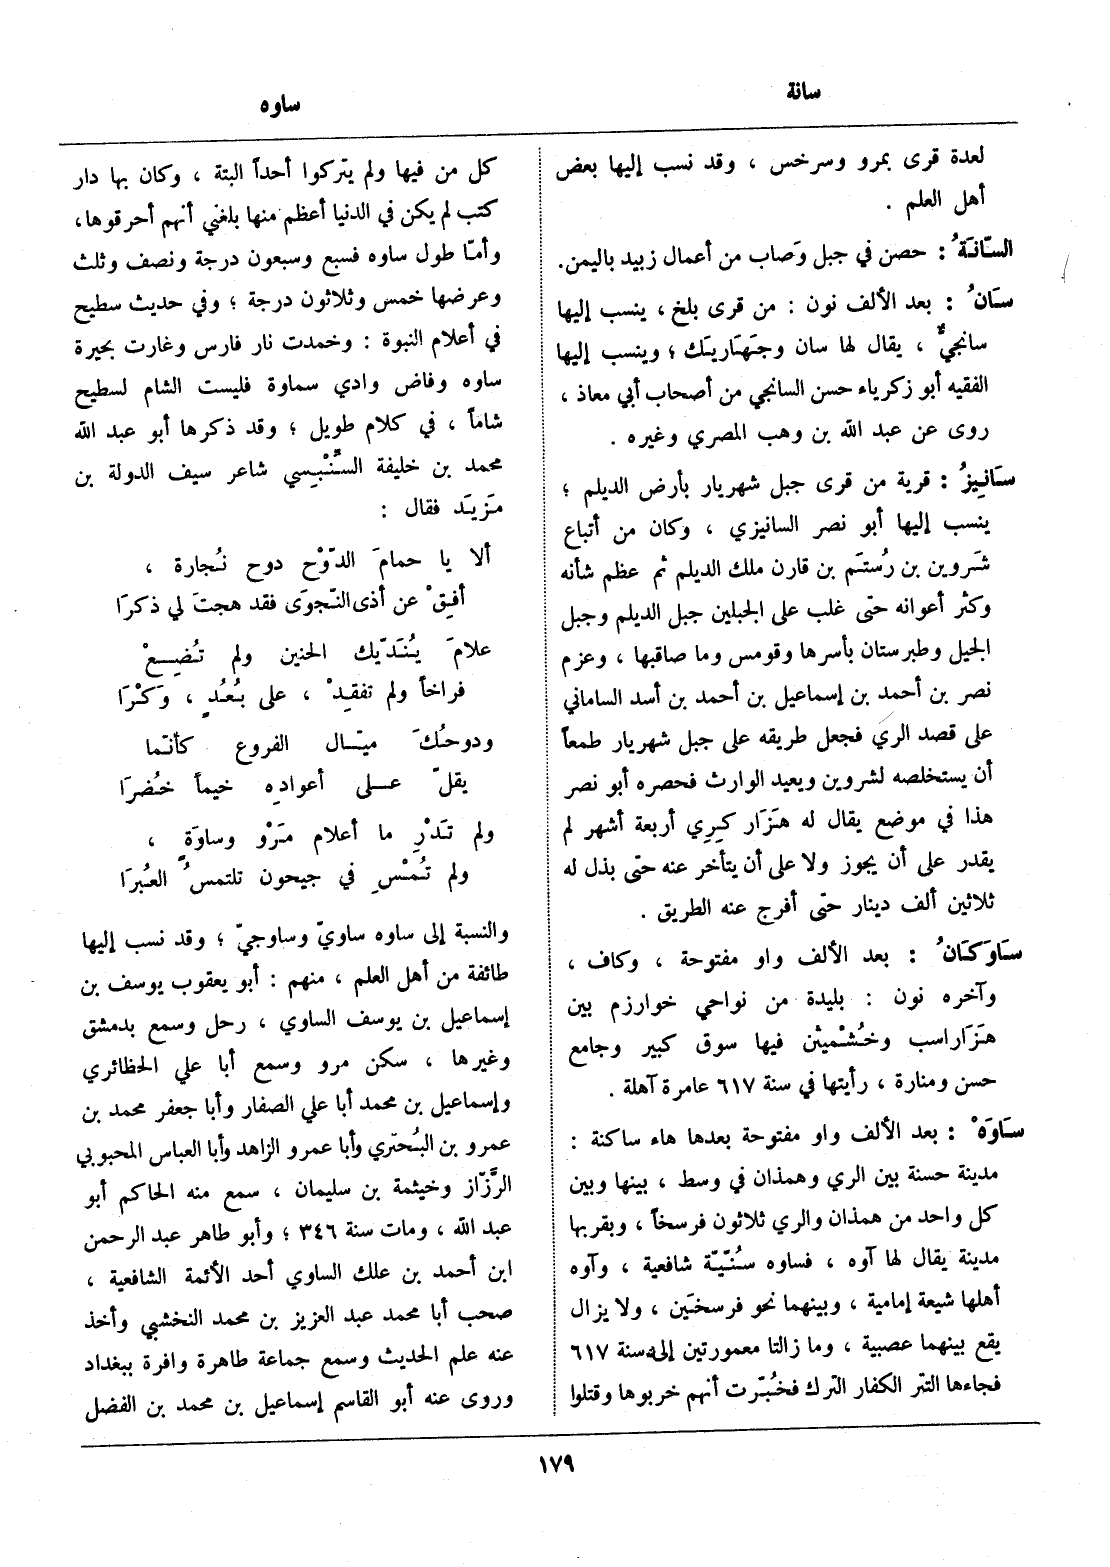 سانة
ساوه
لعدة قرى بمرو وسرخس ، وقد نسب إليها بعض
أهل العلم .
السّانَةُ : حصن في جبل وَصاب من أعمال زبيد باليمن.
سَانُ : بعد الألف نون : من قرى بلخ ، ينسب إليها
سانجيٌّ ، يقال لها سان وجَهَاريَك ؛ وينسب إليها
الفقيه أبو زكرياء حسن السانجي من أصحاب أبي معاذ ،
روى عن عبد الله بن وهب المصري وغيره .
سَانِيزُ : قرية من قرى جبل شهريار بأرض الديلم ؛
ينسب إليها أبو نصر السانيزي ، وكان من أتباع
شَروين بن رُستَم بن قارن ملك الديلم ثم عظم شأنه
وكثر أعوانه حتى غلب على الجبلين جبل الديلم وجبل
الجيل وطبرستان بأسرها وقومس وما صاقبها ، وعزم
نصر بن أحمد بن إسماعيل بن أحمد بن أسد الساماني
على قصد الري فجعل طريقه على جبل شهريار طمعاً
أن يستخلصه لشروين ويعيد الوارث فحصره أبو نصر
هذا في موضع يقال له هَزَار كَرِي أربعة أشهر لم
يقدر على أن يجوز ولا على أن يتأخر عنه حتى بذل له
ثلاثين ألف دينار حتى أفرج عنه الطريق .
سَاوَكَانُ : بعد الألف واو مفتوحة ، وكاف ،
وآخره نون : بليدة من نواحي خوارزم بين
هَزَاراسب وخُشْميثن فيها سوق كبير وجامع
حسن ومنارة ، رأيتها في سنة ٦١٧ عامرة آهلة .
سَاوَهْ : بعد الألف واو مفتوحة بعدها هاء ساكنة :
مدينة حسنة بين الري وهمذان في وسط ، بينها وبين
كل واحد من همذان والري ثلاثون فرسخاً ، وبقربها
مدينة يقال لها آوه ، فساوه سُنّيّة شافعية ، وآوه
أهلها شيعة إمامية ، وبينهما نحو فرسخَين ، ولا يزال
يقع بينهما عصبية ، وما زالتا معمورتين إلى سنة ٦١٧
فجاءها التتر الكفار الترك فخُبّرت أنهم خربوها وقتلوا
كل من فيها ولم يتركوا أحداً البتة ، وكان بها دار
كتب لم يكن في الدنيا أعظم منها بلغني أنهم أحرقوها،
وأمّا طول ساوه فسبع وسبعون درجة ونصف وثلث
وعرضها خمس وثلاثون درجة ؛ وفي حديث سطيح
في أعلام النبوة : وخمدت نار فارس وغارت بحيرة
ساوه وفاض وادي سماوة فليست الشام لسطيح
شاماً ، في كلام طويل ؛ وقد ذكرها أبو عبد الله
محمد بن خليفة السِّنْبِسي شاعر سيف الدولة بن
مَزيَد فقال :
ألا يا حمامَ الدّوْح دوح نُجارة ،
أفِقْ عن أذى النّجوَى فقد هجتَ لي ذكرَا
علامَ يُنَدّيك الحنين ولم تُضِعْ
فراخاً ولم تفقِدْ ، على بُعُدٍ ، وَكْرَا
ودوحُكَ ميّال الفروع كأنّما
يقلّ على أعوادِه خيماً خُضرَا
ولم تَدْرِ ما أعلام مَرْو وساوَةٍ ،
ولم تُمْسِ في جيحون تلتمسُ العُبرَا
والنسبة إلى ساوه ساويّ وساوجيّ ؛ وقد نسب إليها
طائفة من أهل العلم ، منهم : أبو يعقوب يوسف بن
إسماعيل بن يوسف الساوي ، رحل وسمع بدمشق
وغيرها ، سكن مرو وسمع أبا علي الحظائري
وإسماعيل بن محمد أبا علي الصفار وأبا جعفر محمد بن
عمرو بن البُحتري وأبا عمرو الزاهد وأبا العباس المحبوبي
الرَّزّاز وخيثمة بن سليمان ، سمع منه الحاكم أبو
عبد الله ، ومات سنة ٣٤٦ ؛ وأبو طاهر عبد الرحمن
ابن أحمد بن علك الساوي أحد الأئمة الشافعية ،
صحب أبا محمد عبد العزيز بن محمد النخشبي وأخذ
عنه علم الحديث وسمع جماعة طاهرة وافرة ببغداد
وروى عنه أبو القاسم إسماعيل بن محمد بن الفضل
١٧٩